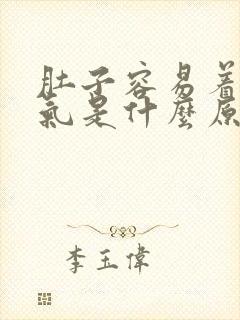 肚子容易着
氣是什麼原
李玉偉